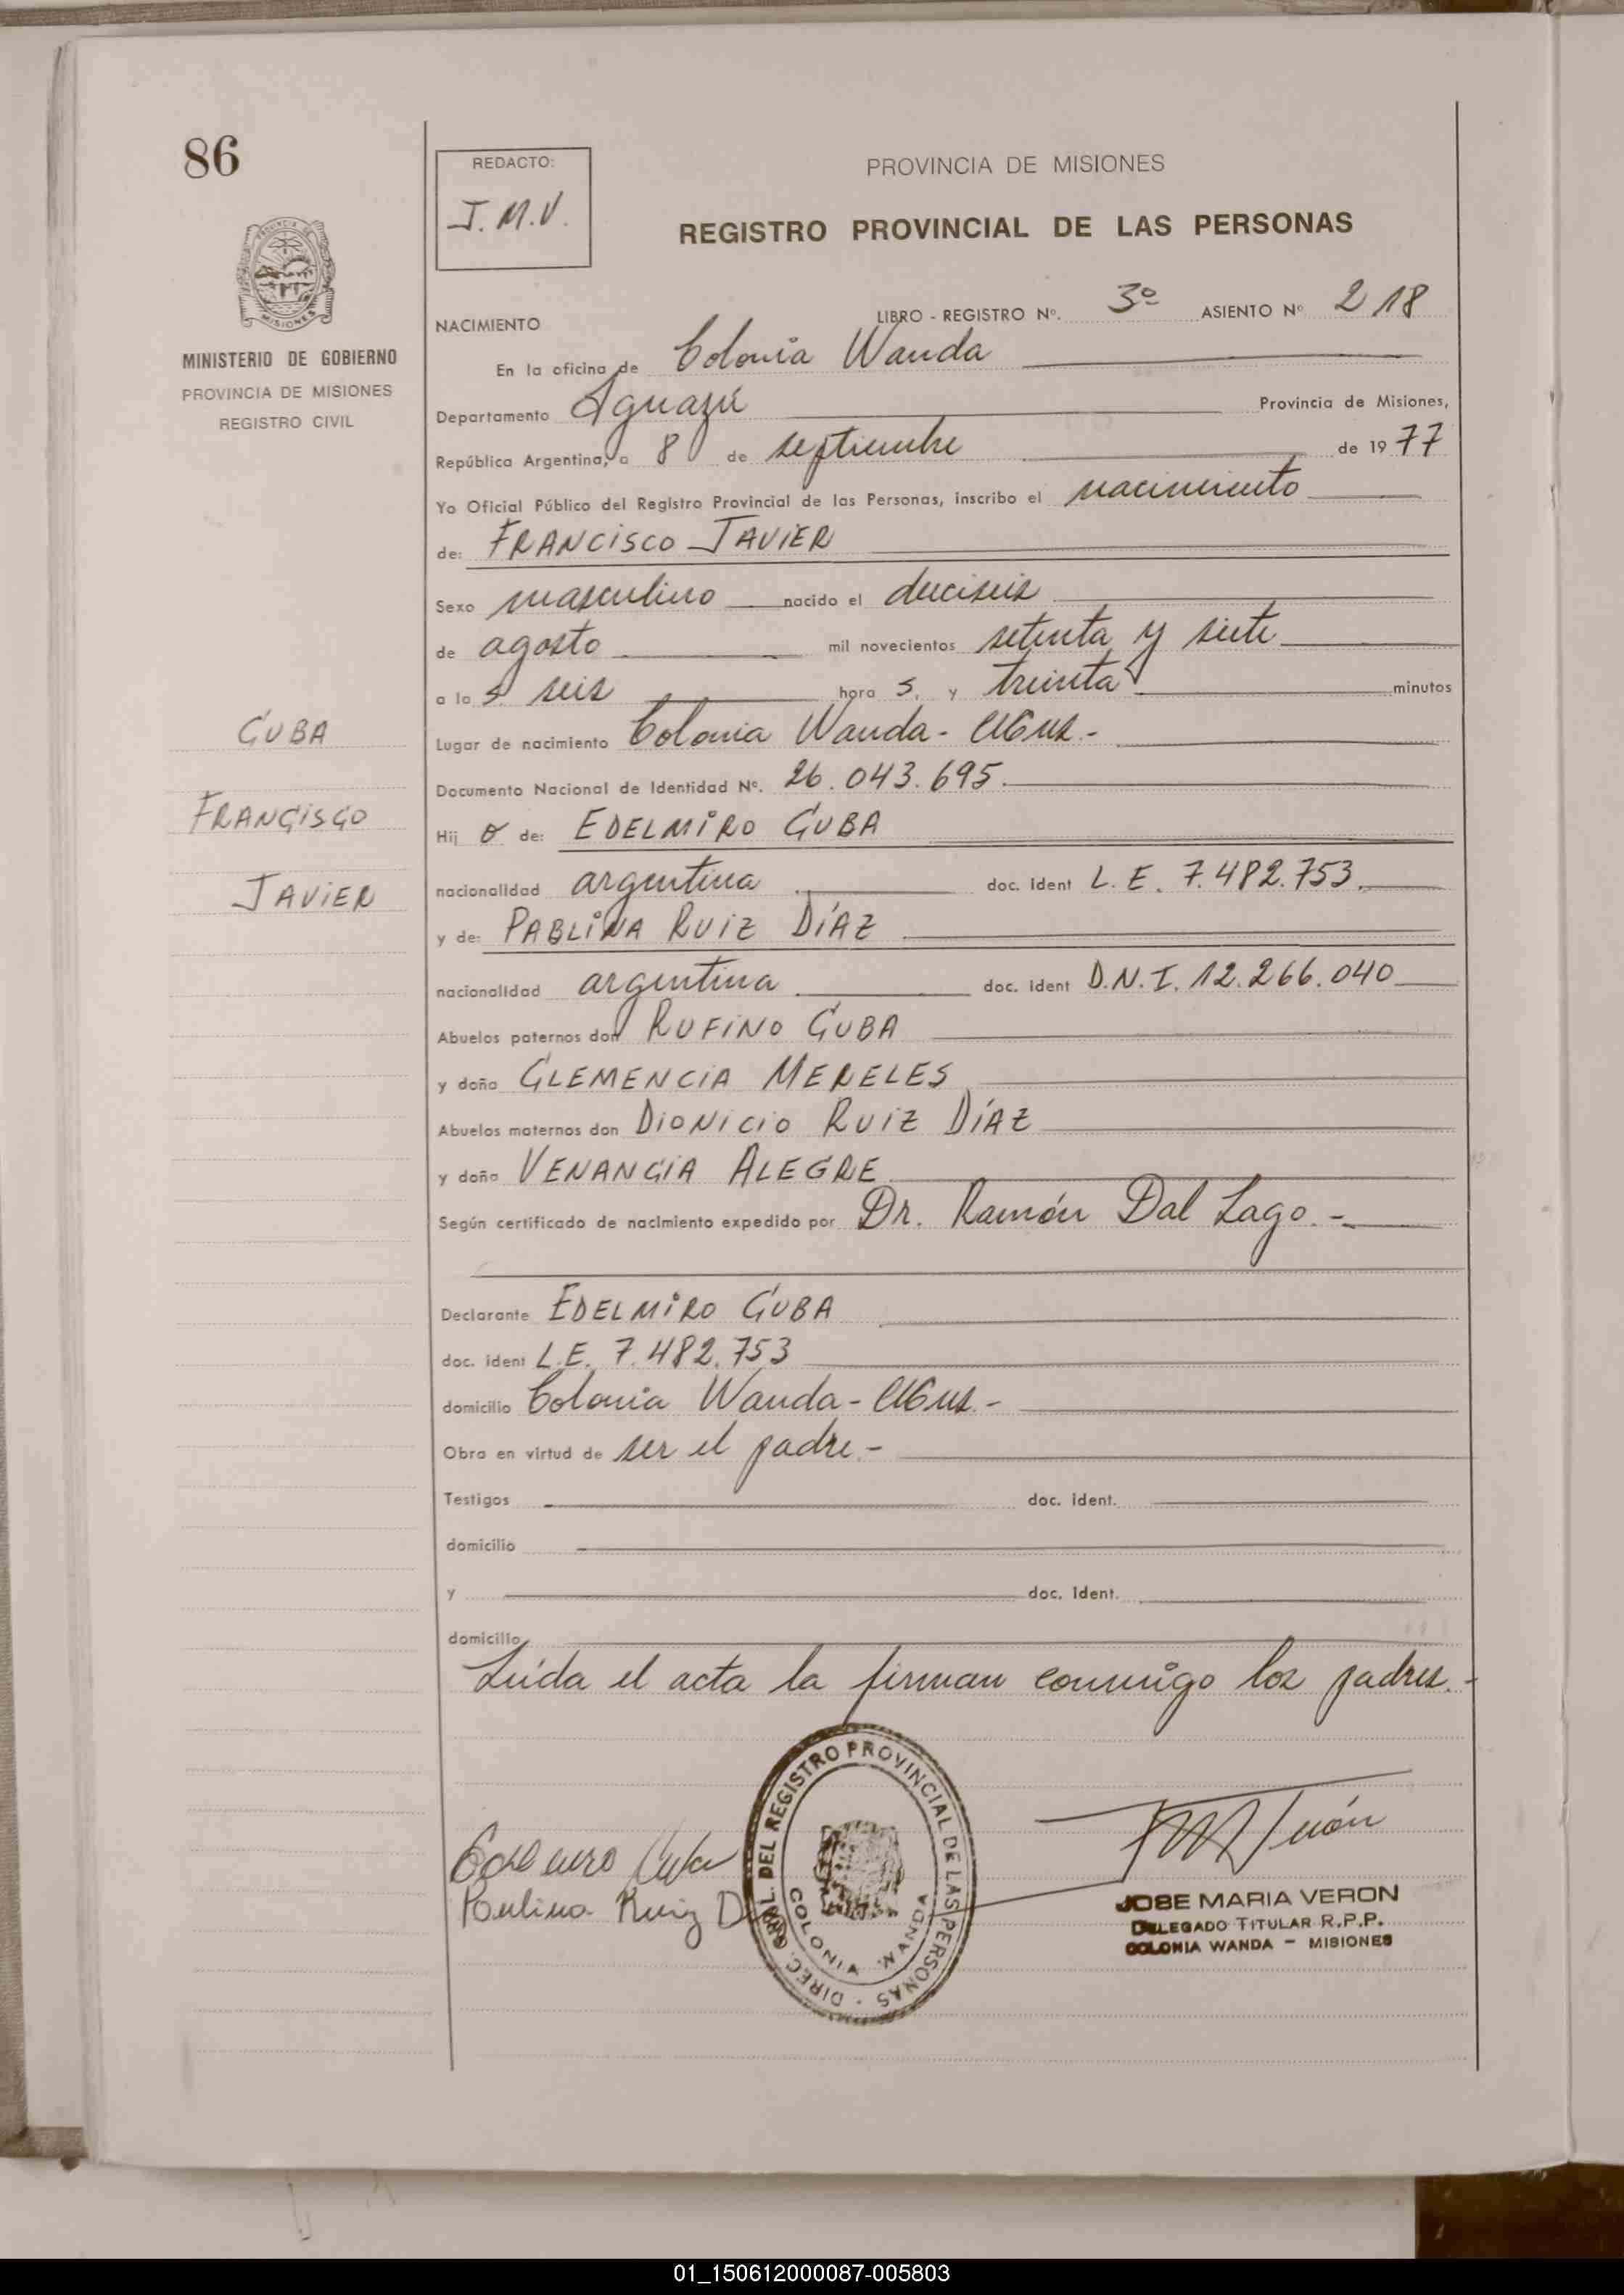 86
REDACTO:
J.M.V.
PROVINCIA DE MISIONES
REGISTRO PROVINCIAL DE LAS PERSONAS
MISIONES
MINISTERIO DE GOBIERNO
PROVINCIA DE MISIONES
REGISTRO CIVIL
NACIMIENTO LIBRO - REGISTRO Nº. 3º ASIENTO Nº 218
En la oficina de Colonia Wanda
Departamento Iguazú Provincia de Misiones,
República Argentina, a 8 de septiembre de 1977
Yo Oficial Público del Registro Provincial de las Personas, inscribo el nacimiento
de: FRANCISCO JAVIER
Sexo masculino nacido el dieciseis
de agosto mil novecientos setenta y siete
a las seis horas, y treinta minutos
Lugar de nacimiento Colonia Wanda-
Documento Nacional de Identidad Nº. 26.043.695.
Hijo de: EDELMIRO CUBA
nacionalidad argentina doc. ident L.E. 7.482.753.
y de: PABLINA RUIZ DÍAZ
nacionalidad argentina doc. ident D.N.I. 12.266.040
Abuelos paternos don RUFINO CUBA
y doña CLEMENCIA MERELES
Abuelos maternos don DIONICIO RUIZ DÍAZ
y doña VENANCIA ALEGRE
Según certificado de nacimiento expedido por Dr. Ramón Dal Lago.-
Declarante EDELMIRO CUBA
doc. ident L.E. 7.482.753
domicilio Colonia Wanda-
Obra en virtud de ser el padre.-
Testigos doc. ident.
domicilio
y doc. ident.
domicilio
Leída el acta la firman conmigo los padres.-
CUBA
FRANCISCO
JAVIER
Paulina Ruiz D
DIREC. GRAL. DEL REGISTRO PROVINCIAL DE LAS PERSONAS
COLONIA WANDA
JOSE MARIA VERON
DELEGADO TITULAR R.P.P.
COLONIA WANDA - MISIONES
01_150612000087-005803